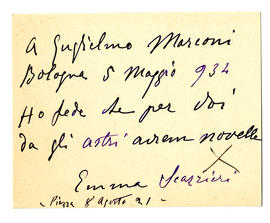 A Guglielmo Marconi
Bologna 5 Maggio 934
Ho fede che per voi
da gli astri avrem novelle
Emma Scazzieri
- Piazza 8 Agosto 21 -